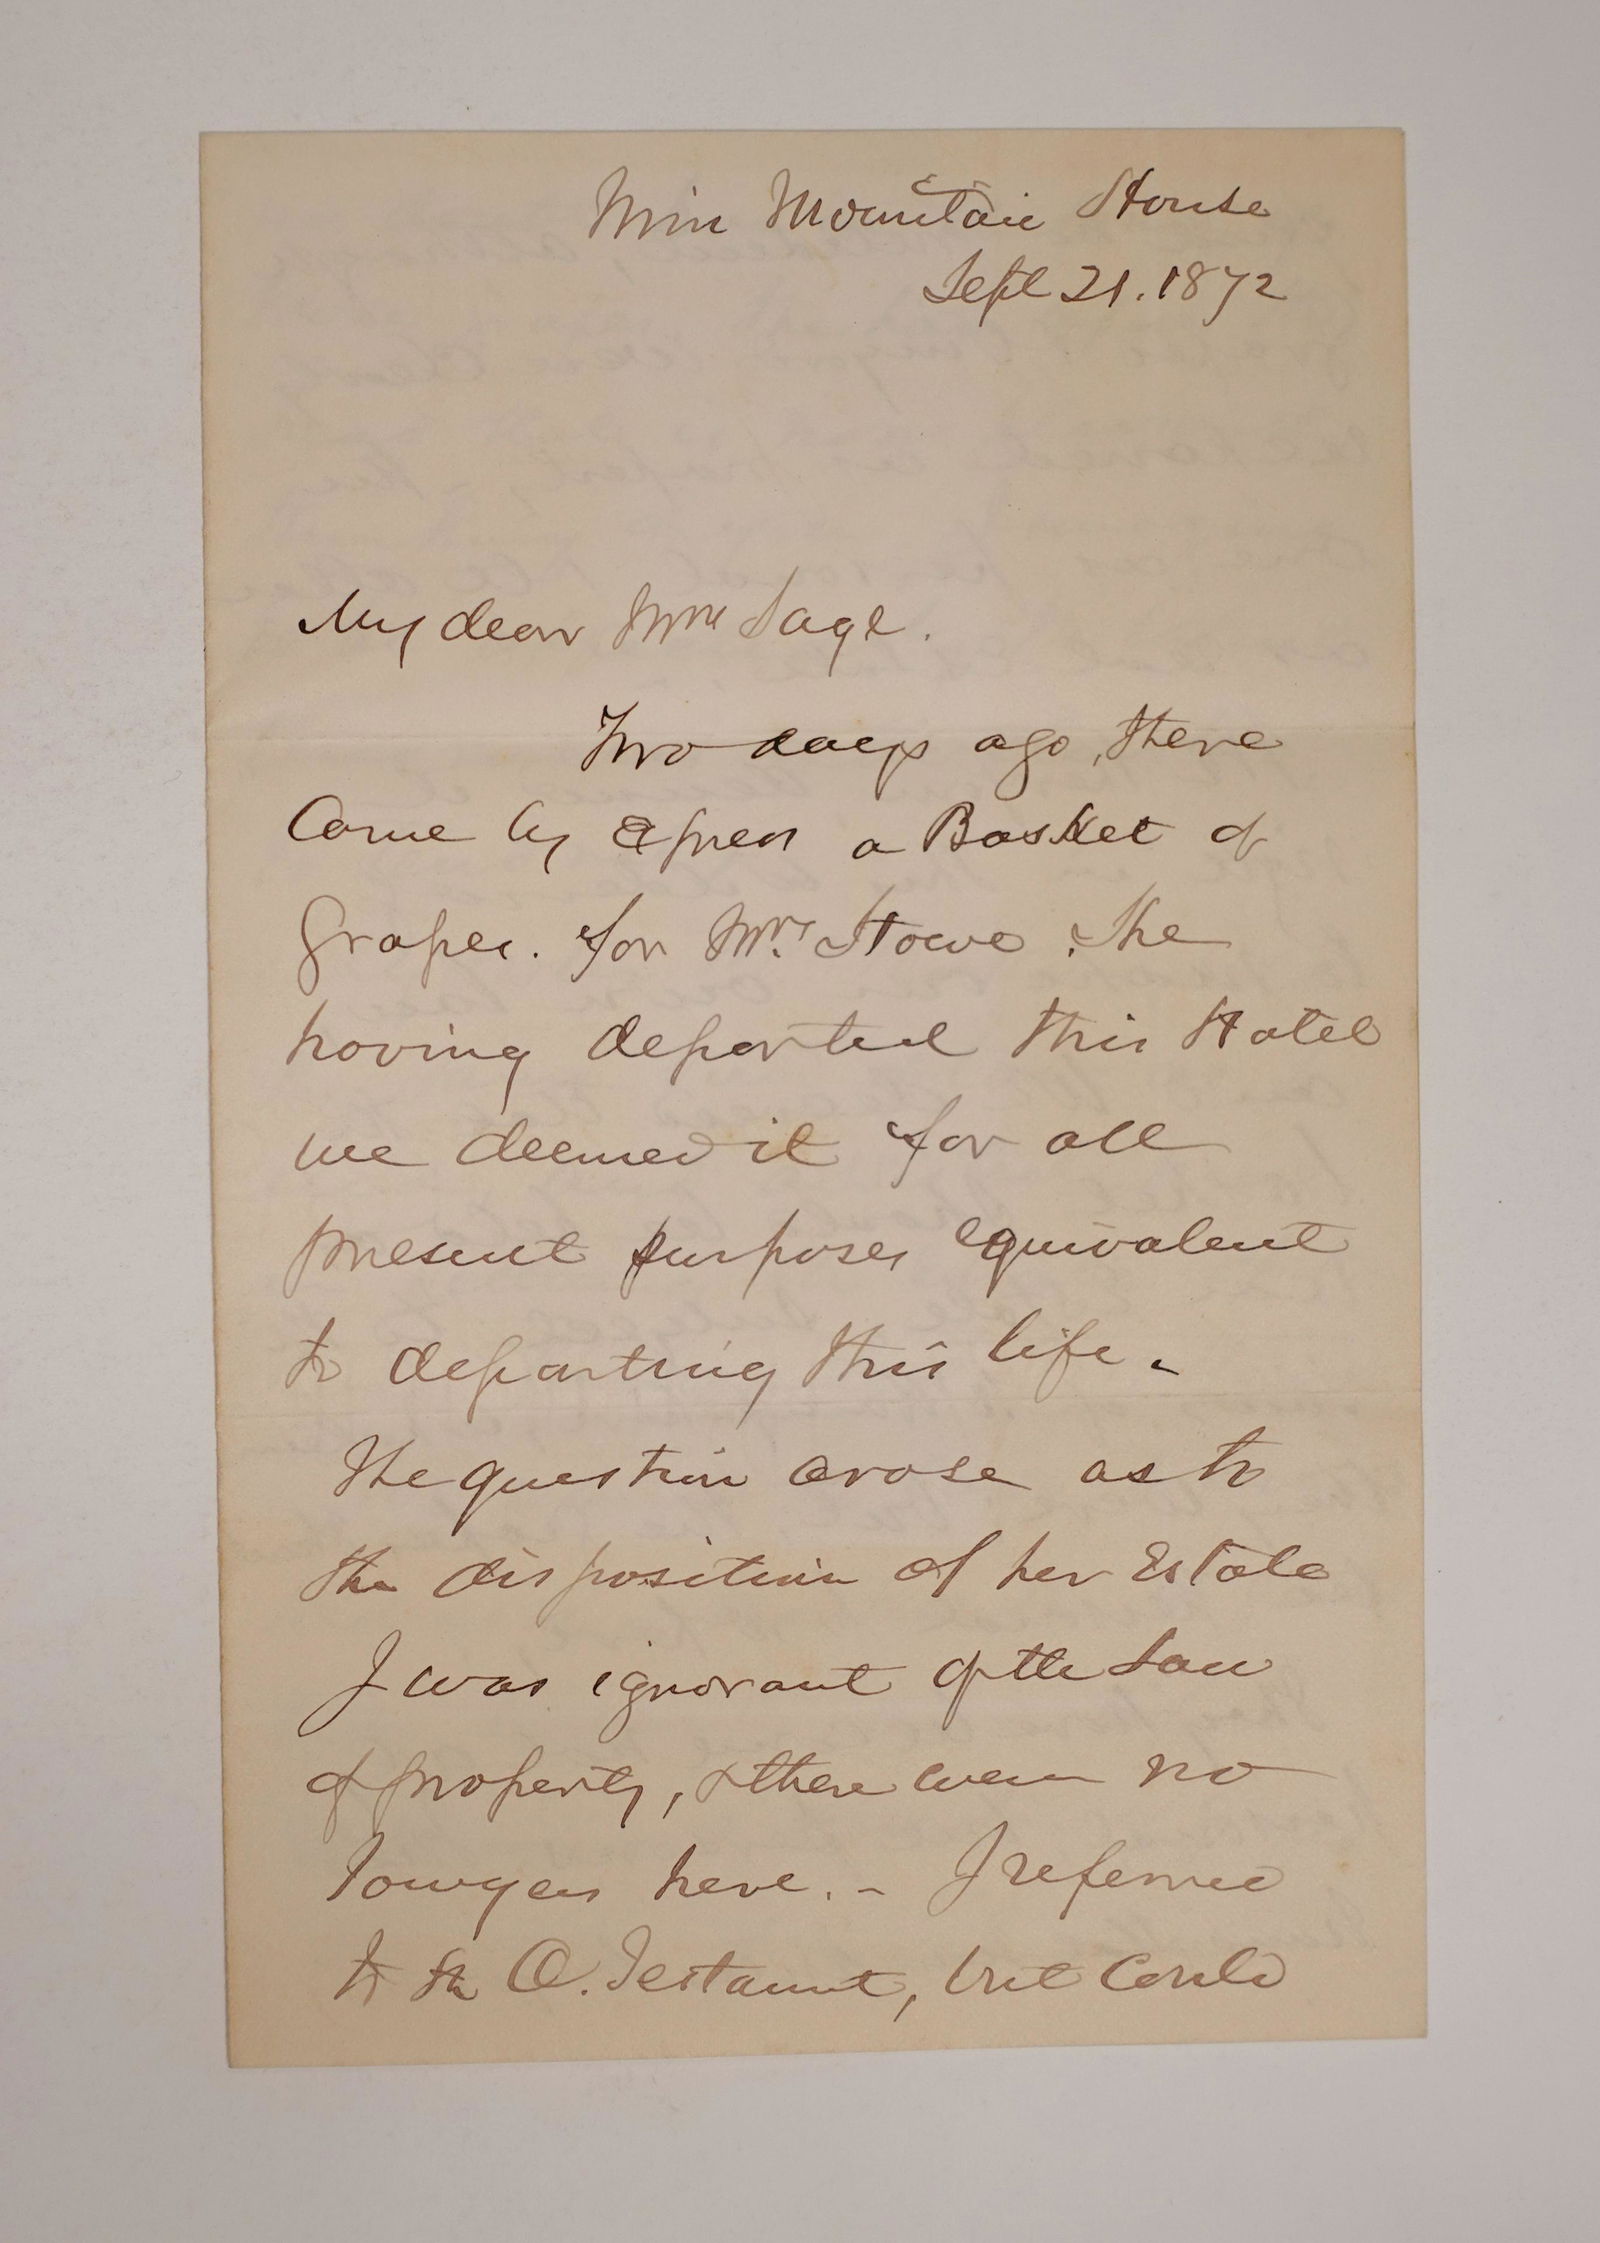 Twin Mountain House
Sept 21. 1872
My dear Mrs Sage.
Two days ago, there
Came by Express a Basket of
Grapes. for Mrs. Stowe. She
having departed this Hotel
we deemed it for all
present purposes equivalent
to departing this life.
The question arose as to
the disposition of her Estate
I was ignorant of the Law
of property, & there were no
Lawyers here. - I referred
to the O. Testament, but could